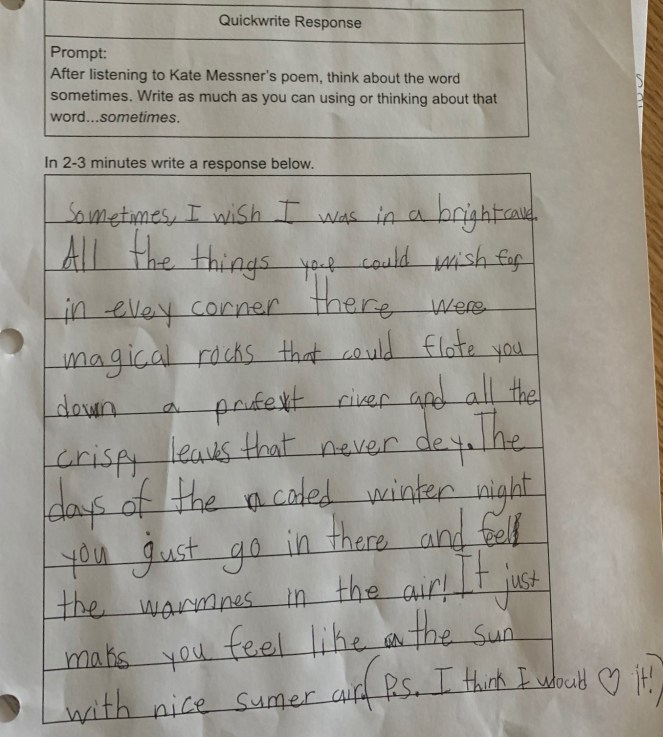 Quickwrite Response
Prompt:
After listening to Kate Messner's poem, think about the word
sometimes. Write as much as you can using or thinking about that
word...sometimes.
In 2-3 minutes write a response below.
Sometimes, I wish I was in a bright cave.
All the things you could wish for
in evey corner there were
magical rocks that could flote you
down a prufext river and all the
crispy leaves that never dey. The
days of the a coded winter night
you gust go in there and feel
the warmnes in the air! It just
maks you feel like on the sun
with nice sumer air! (P.S. I think I would ♡ it!)